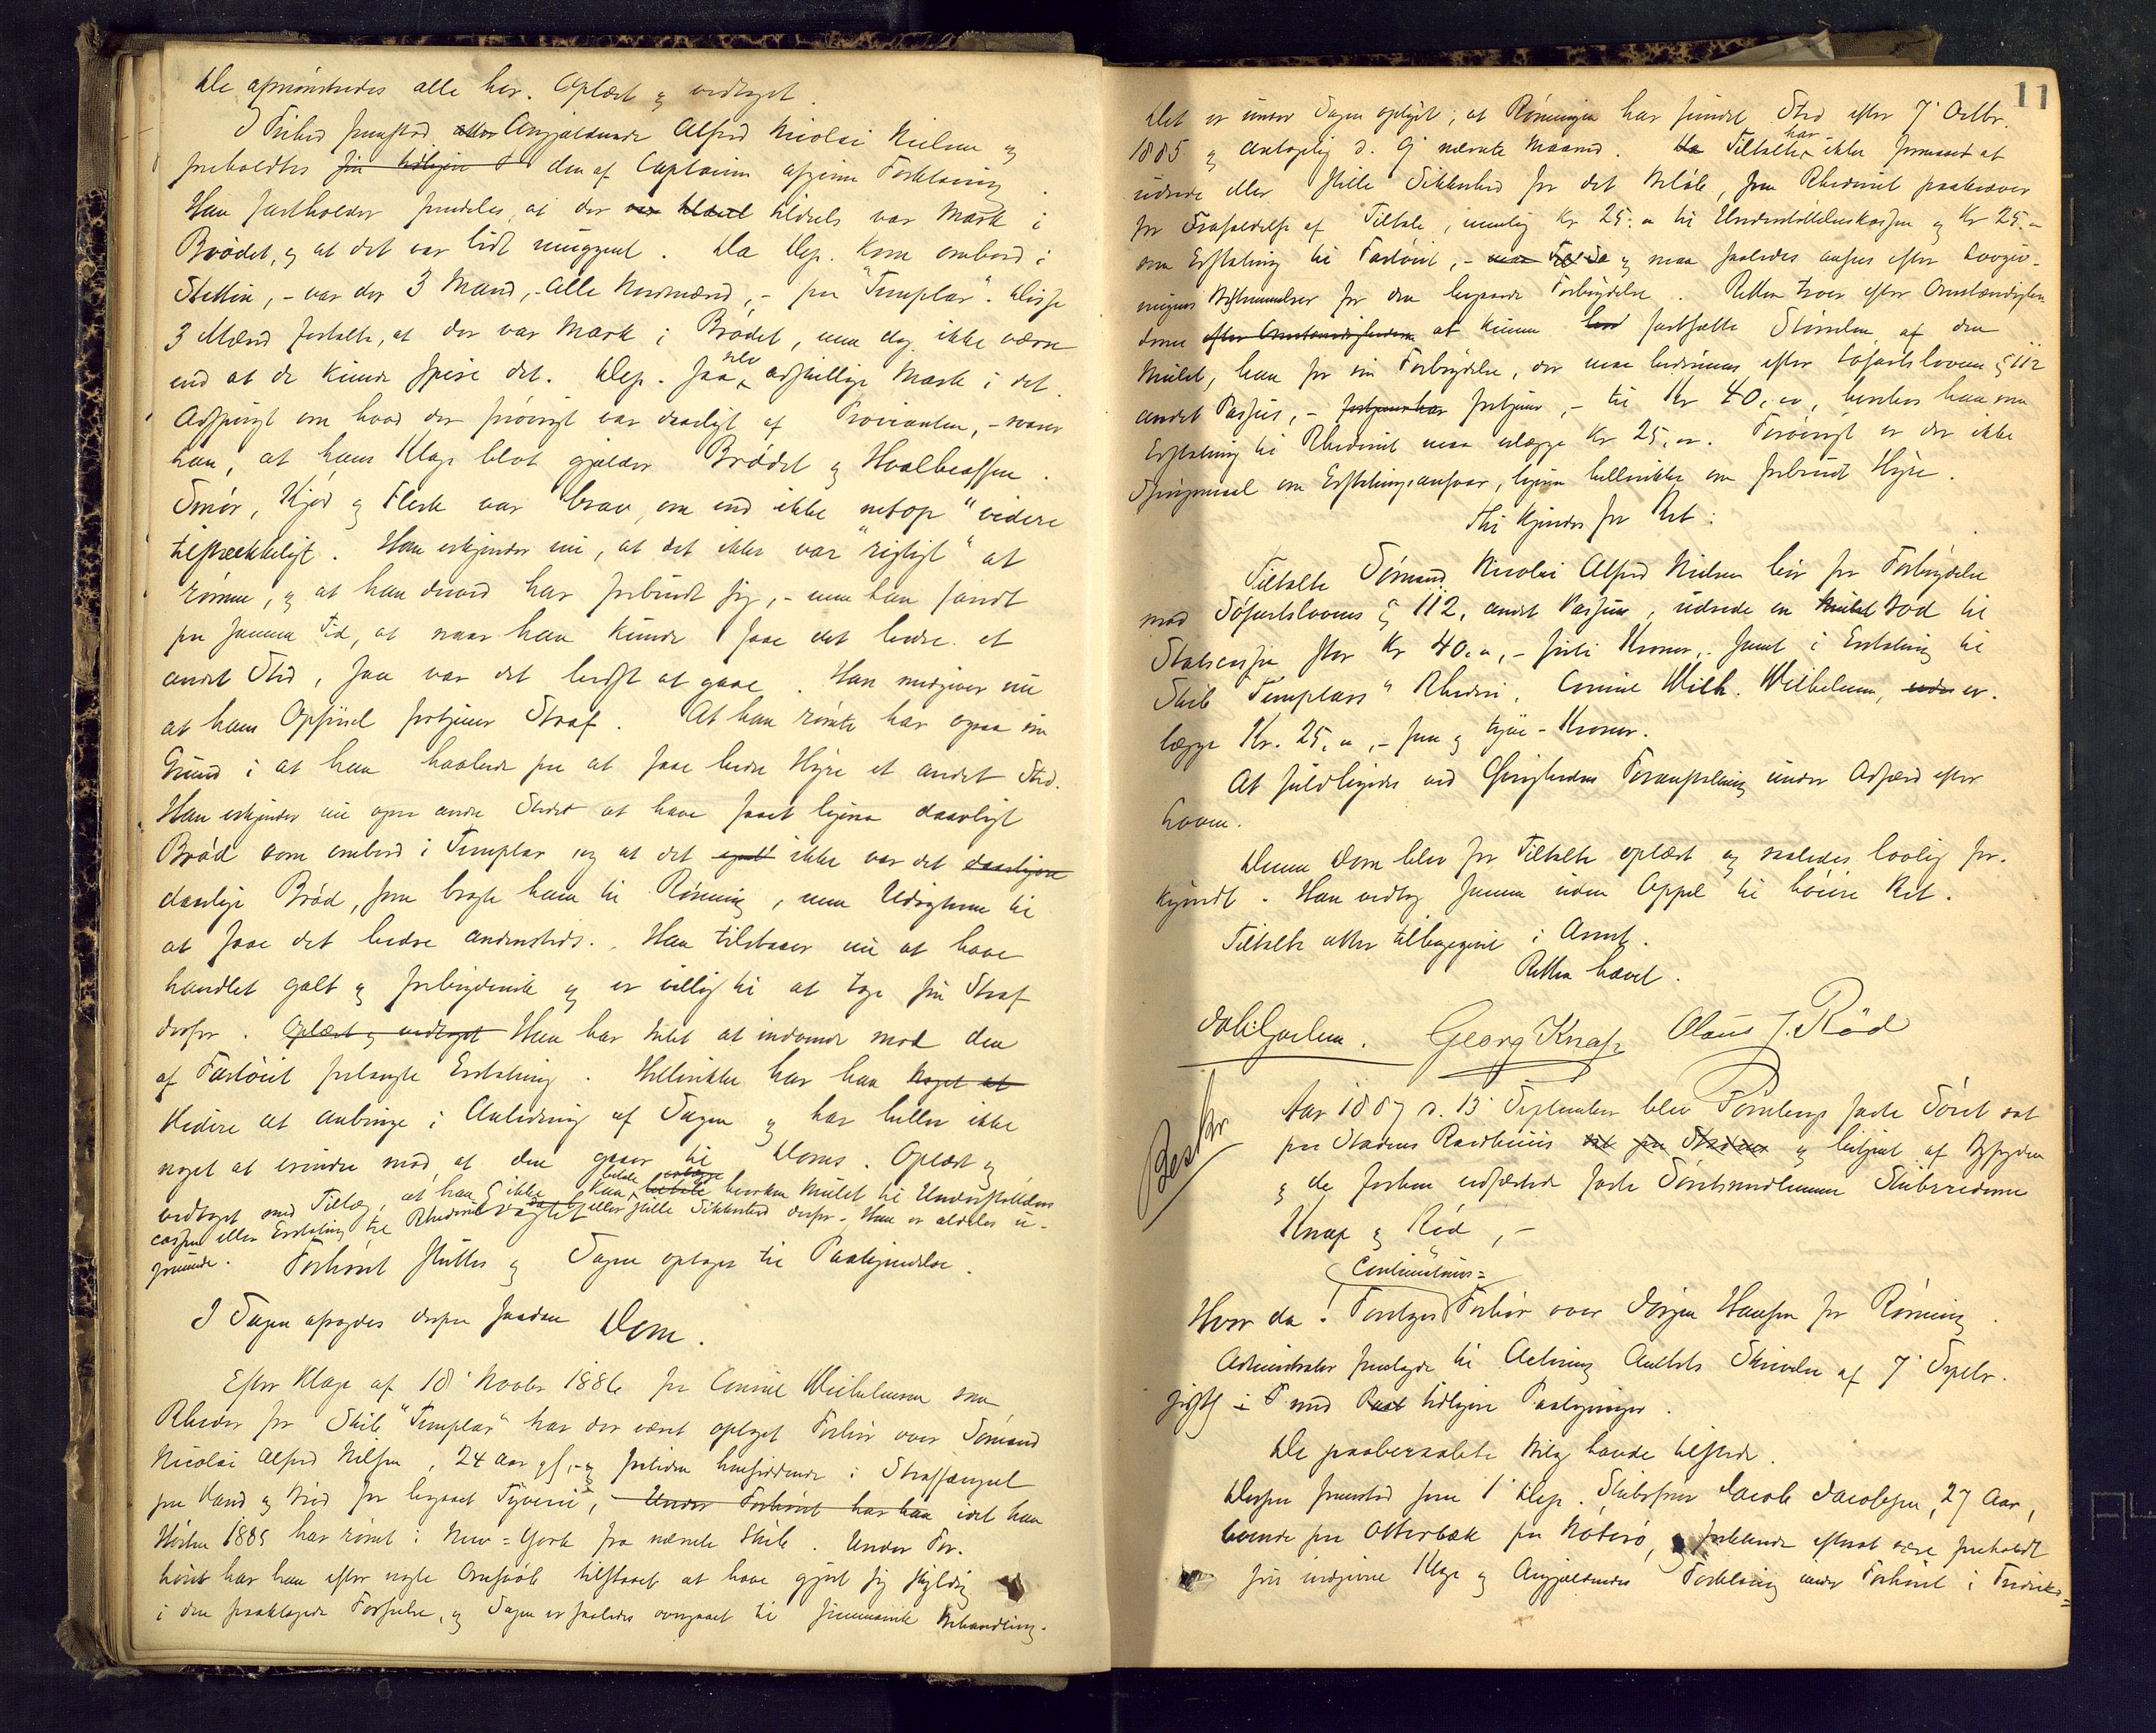 De afmønstredes alle her. Oplæst og vedtaget.
I Frihed fremstod Angjældende Alfred Nicolai Nielsen og
foreholdtes den af Captainen afgivne Forklaring.
Han fastholder fremdeles, at der var tildels var Mark i
Brødet, og at det var lidt muggent. Da Dep. kom ombord i
Stettin, - var der 3 Mand, - alle Nordmænd, - paa "Templar". Disse
3 Mænd fortalte, at der var Mark i Brødet, men dog ikke værre
end at de kunde spise det. Dep. saa selv adskillige Mark i det.
Adspurgt om hvad der forøvrigt var daarligt af Provianten, - svarer
han, at hans Klage blot gjælder Brødet og Hvalbeaffen.
Smør, Kjød og Flesk var brav, om end ikke netop "videre
tilstrækkeligt. Han erkjender nu, at det ikke var "rigtigt" at
rømme, og at han derved har forbrudt sig, - men han fandt
paa samme Tid, at naar han kunde faae det bedre et
andet Sted, saa var det bedst at gaae. Han medgiver nu
at hans Opførsel fortjener Straf. At han rømte har ogsaa sin
Grund i at han haabede paa at faae bedre Hyre et andet Sted.
Han erkjender nu ogsaa andre Steder at have faaet ligesaa daarligt
Brød som ombord i Templar, og at det ikke var det daarligere
daarlige Brød, som bragte ham til Rømning, men Udsigterne til
at faae det bedre andensteds. Han tilstaaer nu at have
handlet galt og forbrydersk og er villig til at tage sin Straf
derfor. Oplæst og vedtaget Han har Intet at indvende mod den
af Fartøiet forlangte Erstatning. Hellerikke har han Noget at
Videre at anbringe i Anledning af Sagen og har heller ikke
noget at erindre mod, at den gaaer til Doms. Oplæst og
vedtaget med Tillæg, at han ikke kan betale hverken Mulct til Understøttelses
cassen eller Erstatning til Rhederiet eller stille Sikkerhed derfor. Han er aldeles u-
formuende. Forhøret sluttes og Sagen optages til Paakjendelse.
I Sagen afsagdes derpaa saadan Dom.
Efter Klage af 18' Novbr 1886 fra Consul Wilhelmsen som
Rheder for Skib "Templar" har der været optaget Forhør over Sømand
Nicolai Alfred Nilsen, 24 Aar gl, - og forhen hensiddende i Straffængsel
paa Vand og Brød for begaaet Tyverie, - Under Forhøret har han idet han
Høsten 1885 har rømt i New=York fra nævnte Skib. Under For-
høret har han efter nogle Omsvøb tilstaaet at have gjort sig skyldig
i den paaklagede Forseelse, og Sagen er saaledes overgaaet til summarisk Behandling.
11
Det er under Sagen oplyst, at Rømningen har fundet Sted efter 7' Octbr.
1885 og antagelig d. 9' nævnte Maaned. Da Tiltalte har ikke formaaet at
udrede eller stille Sikkerhed for det Beløb, som Rhederiet paakræver
for Frafaldelse af Tiltale, nemlig Kr 25. til Understøttelseskassen og Kr 25. -
som Erstatning til Fartøiet, - og maa saaledes ansees efter Lovgiv-
ningens Bestemmelser for den begaaede Forbrydelse. Retten troer efter Omstændighe-
derne efter Omstændighederne at kunne fastsætte Størrelsen af den
Mulct, han for sin Forbrydelse, der maa bedømmes efter Søfartslovens § 112
andet Passus, - fortjener, - til Kr 40, hvorhos han som
Erstatning til Rhederiet maa erlægge Kr 25. Forøvrigt er der ikke
Spørgsmaal om Erstatningsansvar, ligesaa hellerikke om forbrudt Hyre.
Thi kjendes for Ret:
Tiltalte Sømand Nicolai Alfred Nielsen bør for Forbrydelse
mod Søfartslovens § 112, andet Passus, udrede en Mulct Bod til
Statscassen stor Kr 40, - førti Kroner, - samt i Erstatning til
Skib "Templars" Rhederi, Consul Wilh. Wilhelmsen, er-
lægge Kr. 25, - fem og tyve - Kroner.
At fuldbyrdes ved Øvrighedens Foranstaltning under Adfærd efter
Loven.
Denne Dom blev for Tiltalte oplæst og saaledes lovlig for-
kyndt. Han vedtog samme uden Appel til høiere Ret.
Tiltalte atter tilbagegivet i Arrest.
Retten hævet.
Georg Knap Olaus J. Rød
Beskr
Aar 1887 d. 13' September blev Tønsbergs faste Søret sat
paa Stadens Raadhuus og betjent af Byfogden
og de forhen edfæstede faste Søretsmedlemmer Skibsrederne
Knap og Rød, -
Continuations=
Hvor da: Foretages Forhør over Jørgen Hansen for Rømning.
Administrator fremlagde til Actering Amtets Skrivelse af 7' Septbr.
sidstl med tidligere Paategninger.
De paaberaabte Bilag havde tilstede.
Derpaa fremstod som 1' Dep. Skibsfører Jacob Jacobsen, 27 Aar,
boende paa Otterbæk paa Nøterø, forklarede efterat være foreholdt
sin indgivne Klage og Angjældendes Forklaring under Forhøret i Fredriks=